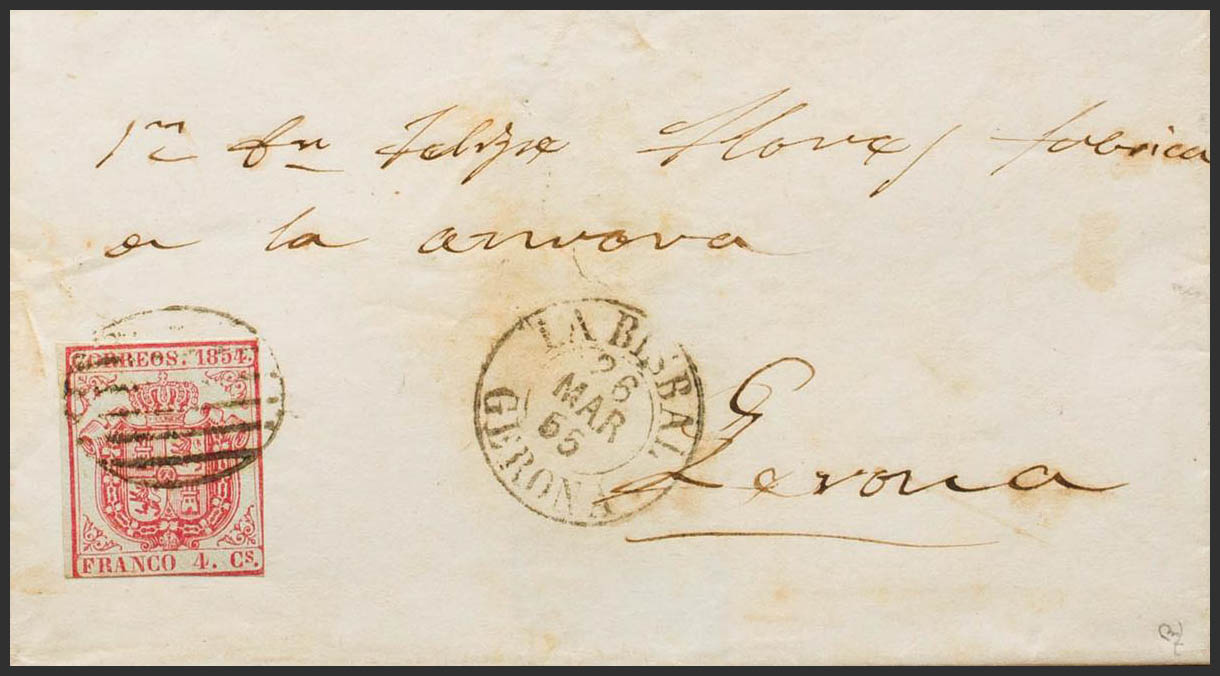 Sr Dn Felipe Flores fabrica
a la
CORREOS. 1854.
FRANCO 4. Cs.
LA BISBAL
26
MAR
55
GERONA
Gerona